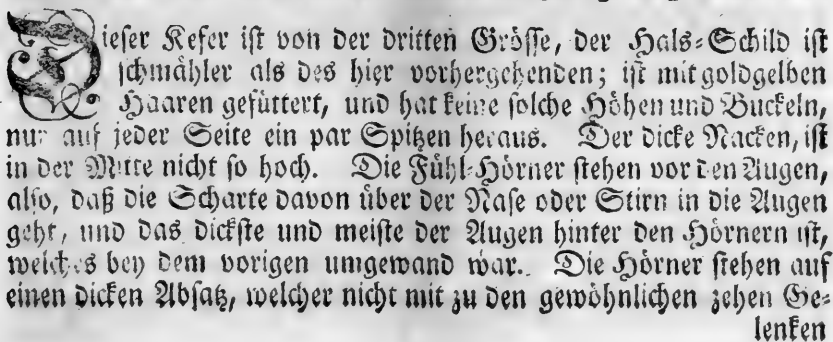 Dieser Kefer ist von der dritten Grösse, der Hals-Schild ist
schmähler als des hier vorhergehenden; ist mit goldgelben
Haaren gefüttert, und hat keine solche Höhen und Buckeln,
nur auf jeder Seite ein par Spitzen heraus. Der dicke Nacken, ist
in der Mitte nicht so hoch. Die Fühl-Hörner stehen vor den Augen,
also, daß die Scharte davon über der Nase oder Stirn in die Augen
geht, und das dickste und meiste der Augen hinter den Hörnern ist,
welches bey dem vorigen umgewand war. Die Hörner stehen auf
einen dicken Absatz, welcher nicht mit zu den gewöhnlichen zehen Ge-
lenken